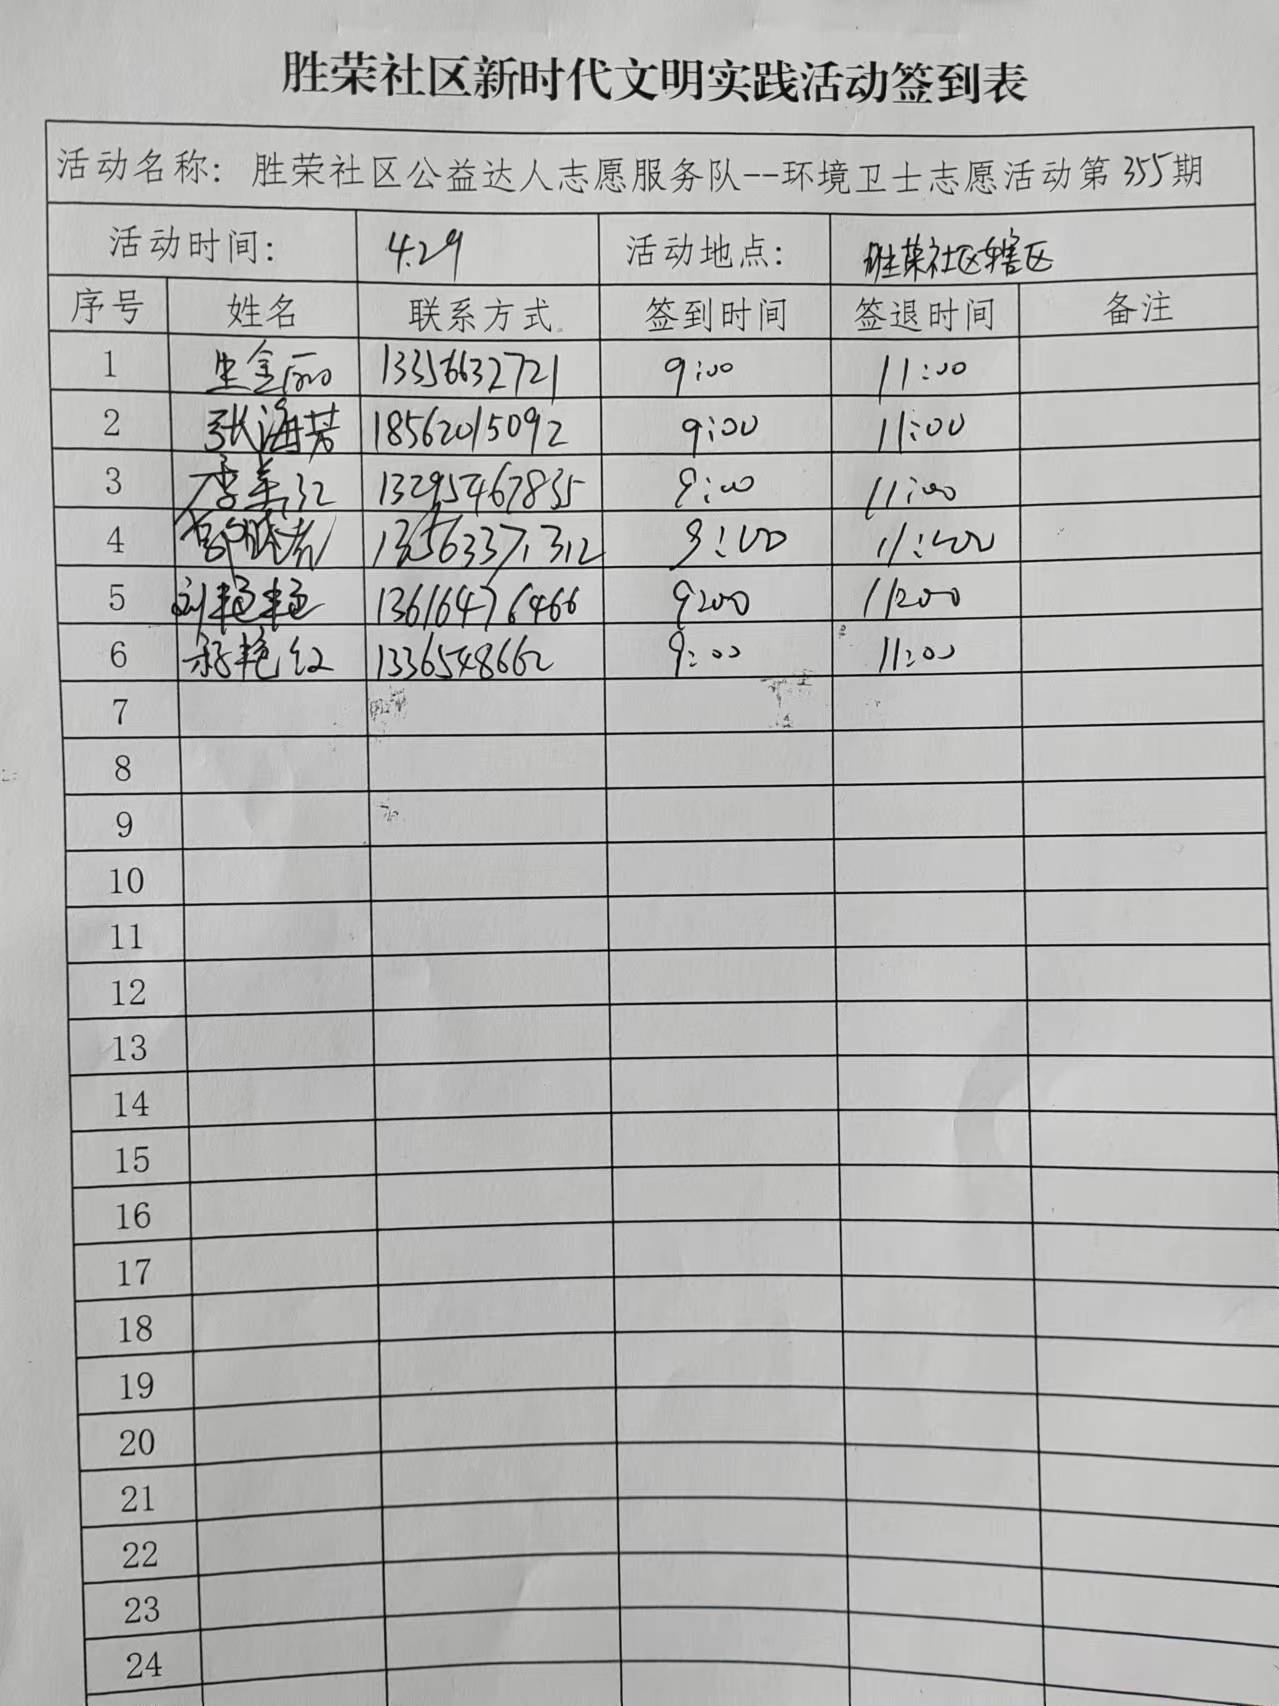 胜荣社区新时代文明实践活动签到表
活动名称：胜荣社区公益达人志愿服务队--环境卫士志愿活动第355期
活动时间： 4.29 活动地点： 胜荣社区辖区
序号 姓名 联系方式 签到时间 签退时间 备注
1 生金丽 13356632721 9:00 11:00
2 张海芳 18562015092 9:00 11:00
3 李美江 13295467835 9:00 11:00
4 9:00 11:00
5 刘艳艳 13616476466 9:00 11:00
6 艳红 1336548662 9:00 11:00
7
8
9
10
11
12
13
14
15
16
17
18
19
20
21
22
23
24